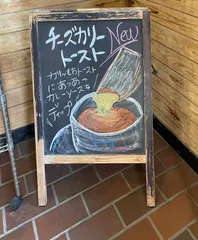 チーズカリー
トースト
New
カリッもちトースト
にあつあつ
カレーソースを
ディップ